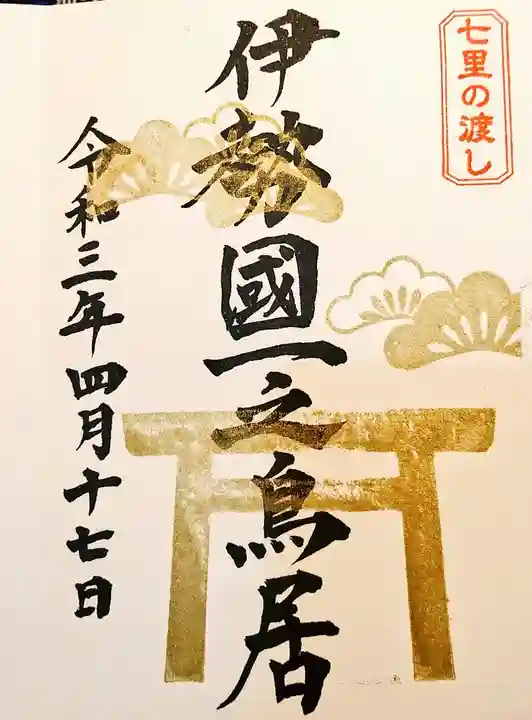 七里の渡し
伊勢國一之鳥居
令和三年四月十七日